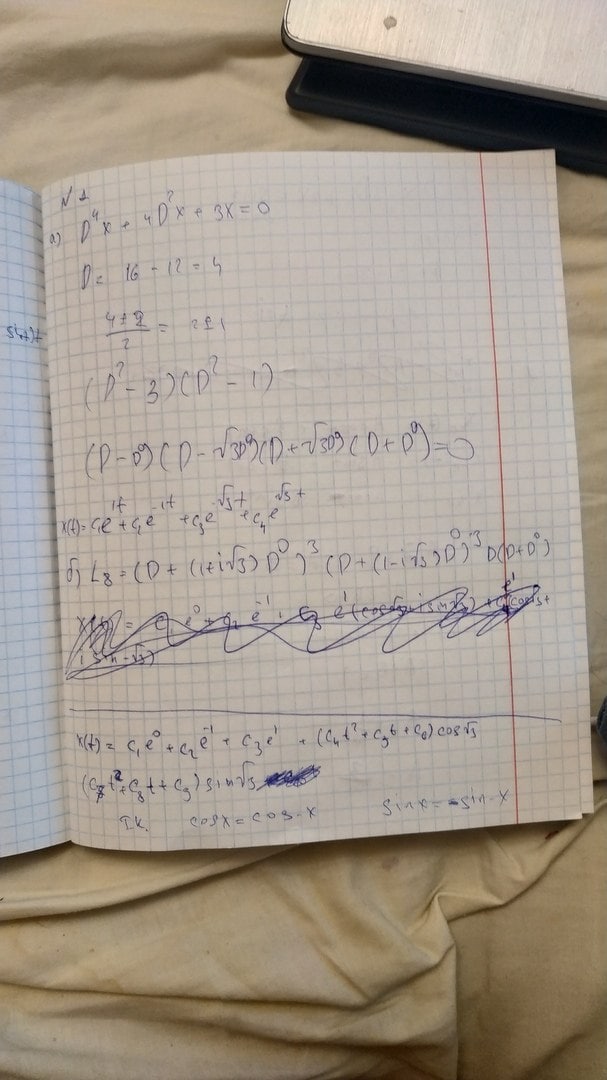 N 1
a) D⁴x + 4D²x + 3x = 0
D = 16 - 12 = 4
(4±2)/2 = 2±1
(D² - 3)(D² - 1)
(D - D⁰)(D - √3D⁰)(D + √3D⁰)(D + D⁰) = 0
x(t) = c₁e^{1t} + c₂e^{-1t} + c₃e^{-√3t} + c₄e^{√3t}
б) L₈ = (D + (1+i√3)D⁰)³ (D + (1-i√3)D⁰)³ D(D+D⁰)
x(t) = c₁e⁰ + c₂e^{-1} + c₃e^{1} + (c₄t² + c₅t + c₆) cos√3
(c₇t² + c₈t + c₉) sin√3
т.к. cos x = cos -x sin x = -sin -x